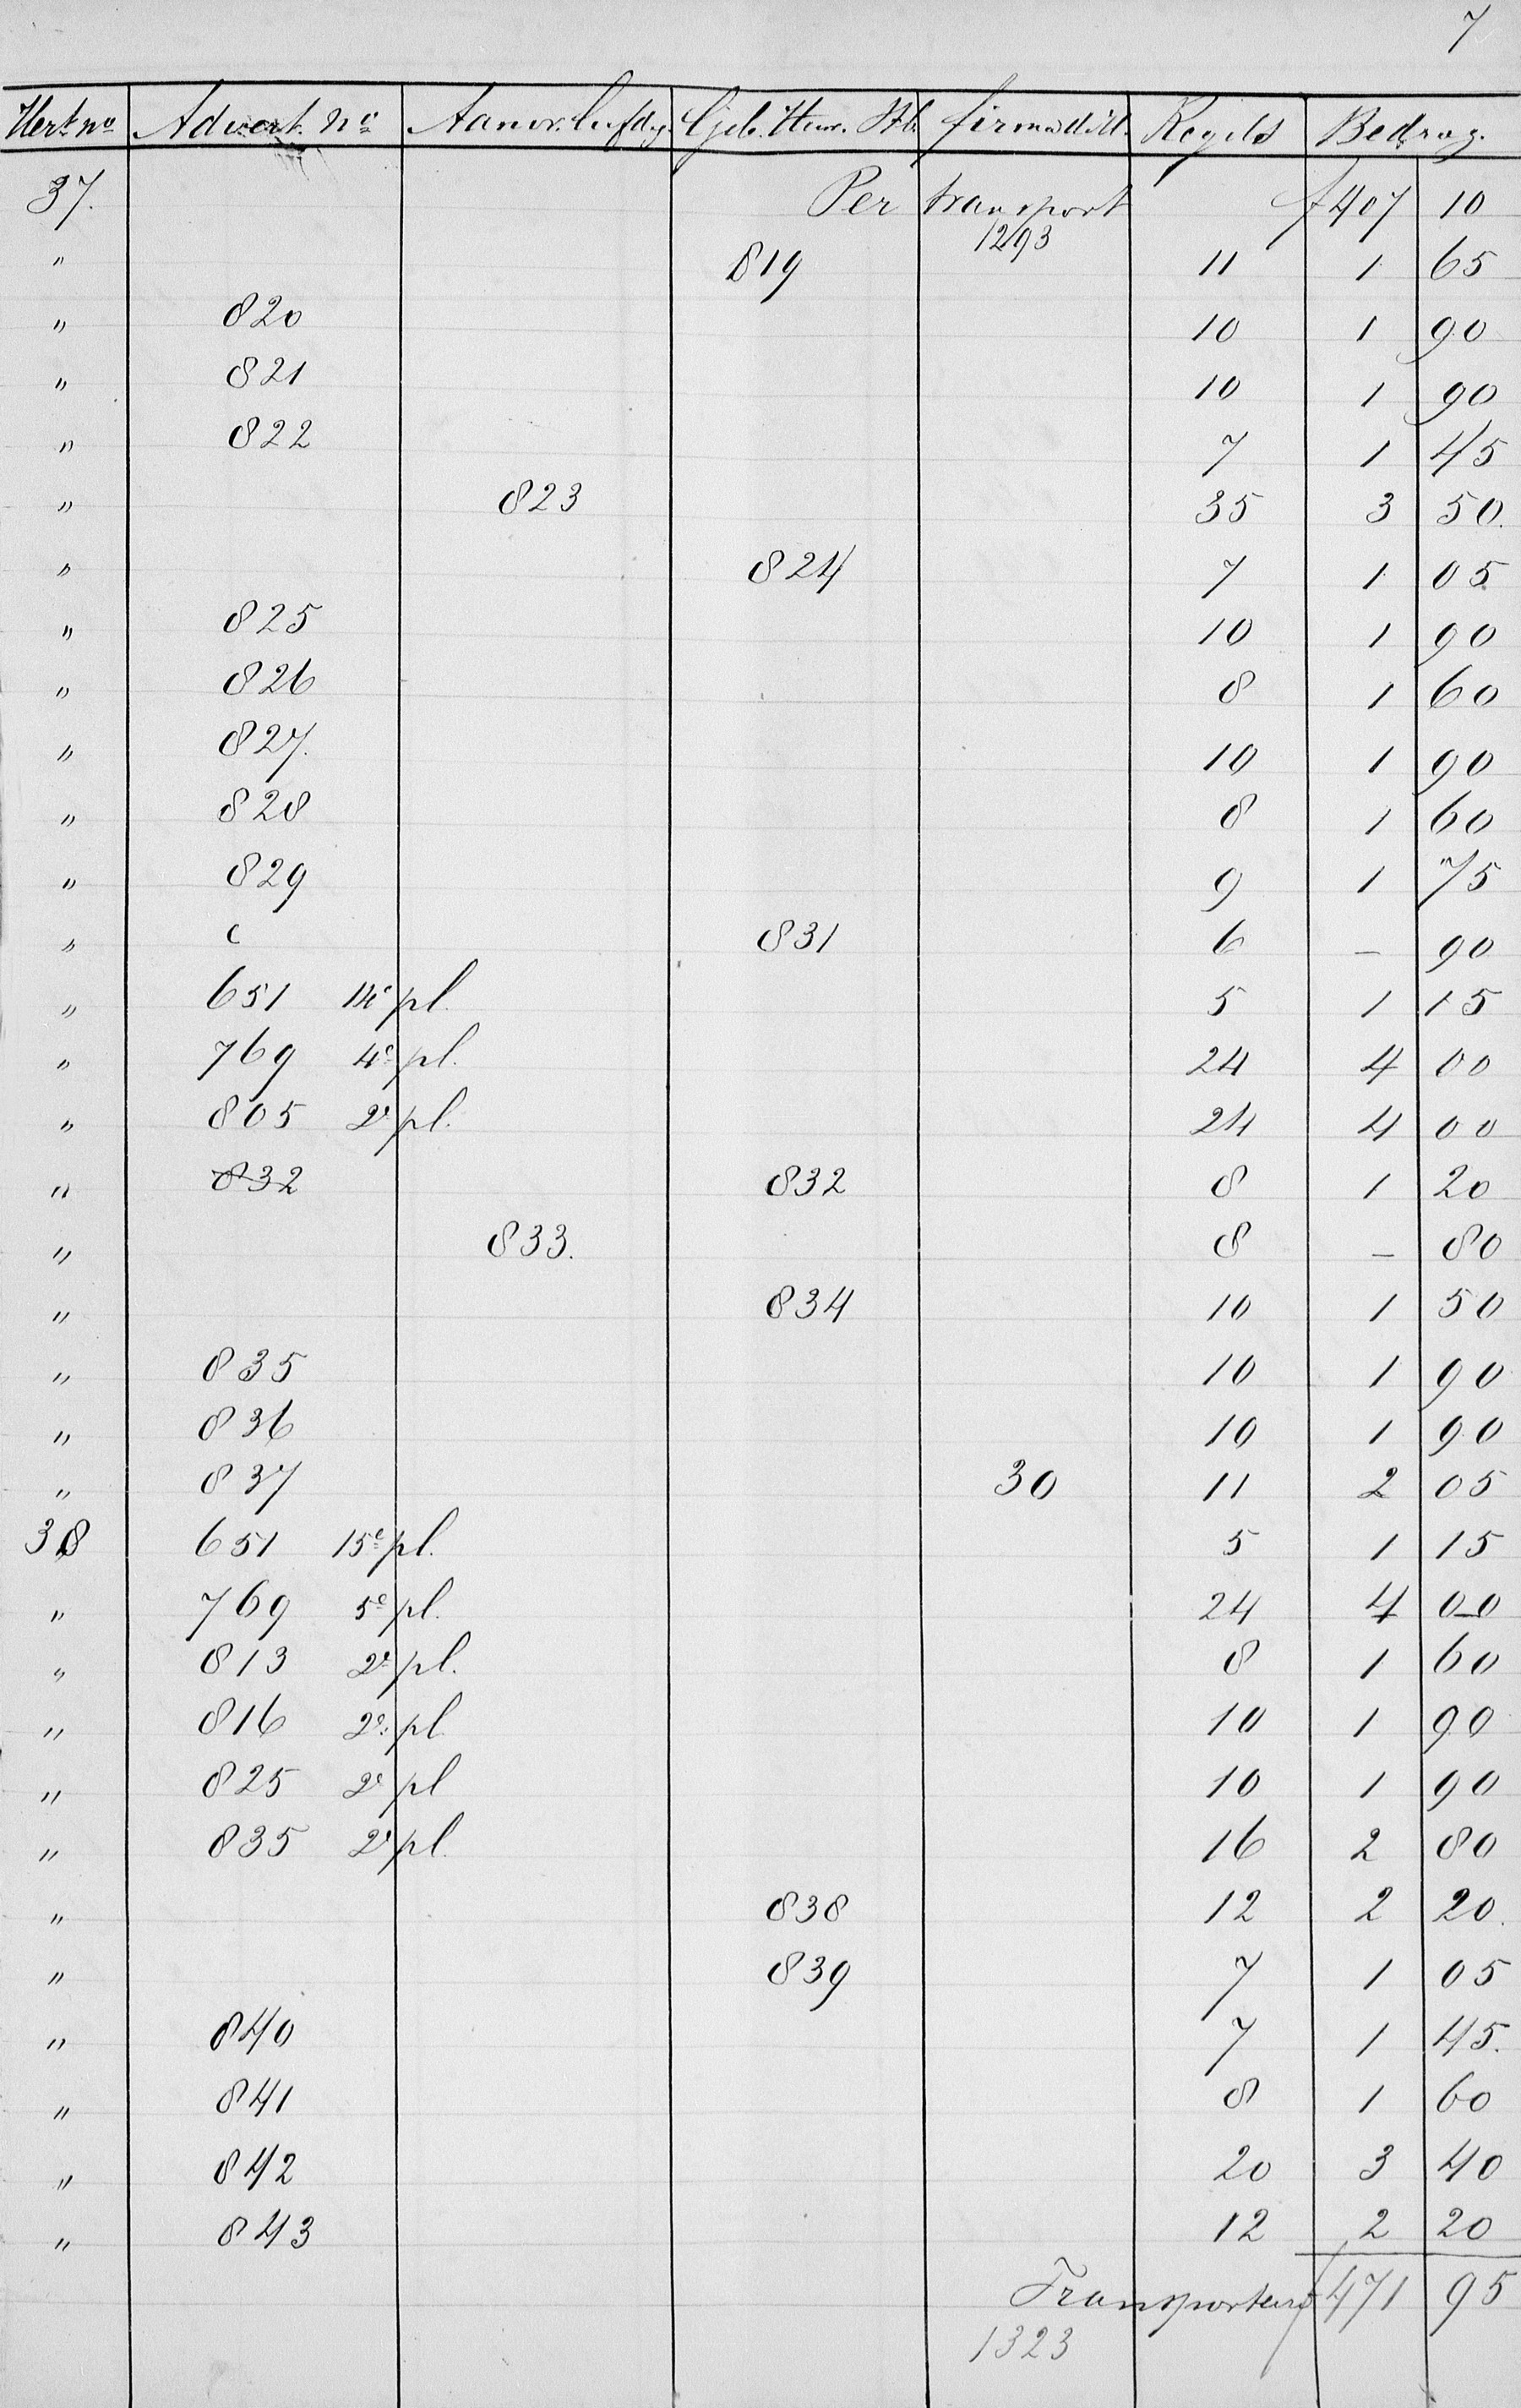 7
Advert. no Regels Bedrag.
37. Per transport f 407 10
1293
" 819 11 1 65
" 820 10 1 90
" 821 10 1 90
" 822 7 1 45
" 823 35 3 50.
" 824 7 1 05
" 825 10 1 90
" 826 8 1 60
" 827. 10 1 90
" 828 8 1 60
" 829 9 1 75
" c 831 6 – 90
" 651 14e pl. 5 1 15
" 769 4e pl. 24 4 00
" 805 2e pl. 24 4 00
" 832 832 8 1 20
" 833. 8 – 80
" 834 10 1 50
" 835 10 1 90
" 836 10 1 90
" 837 30 11 2 05
38 651 15e pl. 5 1 15
" 769 5e pl. 24 4 00
" 813 2e pl. 8 1 60
" 816 2e pl 10 1 90
" 825 2e pl 10 1 90
" 835 2e pl. 16 2 80
" 838 12 2 20.
" 839 7 1 05
" 840 7 1 45.
" 841 8 1 60
" 842 20 3 40
" 843 12 2 20
Transporteere f 471 95
1323